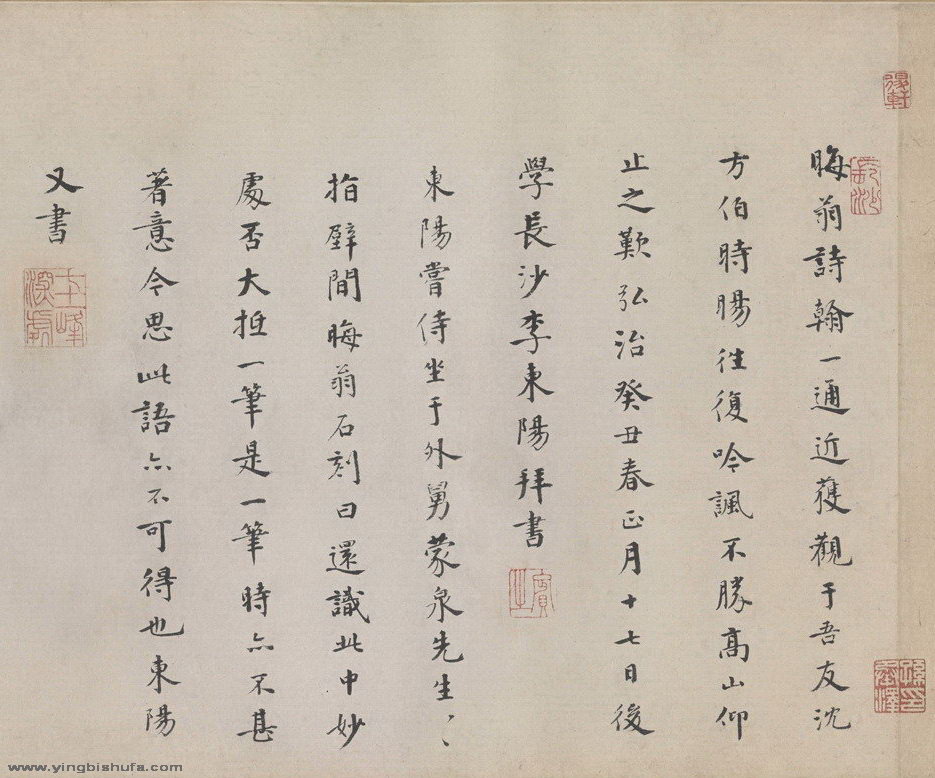 晦翁詩翰一通近蒦觀于吾友沈
方伯時暘徃復吟諷不勝髙山仰
止之歎弘治癸丑春正月十七日後
學長沙李東陽拜書
東陽嘗侍坐于外舅蒙泉先生〻
指壁間晦翁石刻曰還識此中妙
處否大抵一筆是一筆時亦不甚
著意今思此語亦不可得也東陽
又書
長沙
賓之
www.yingbishufa.com